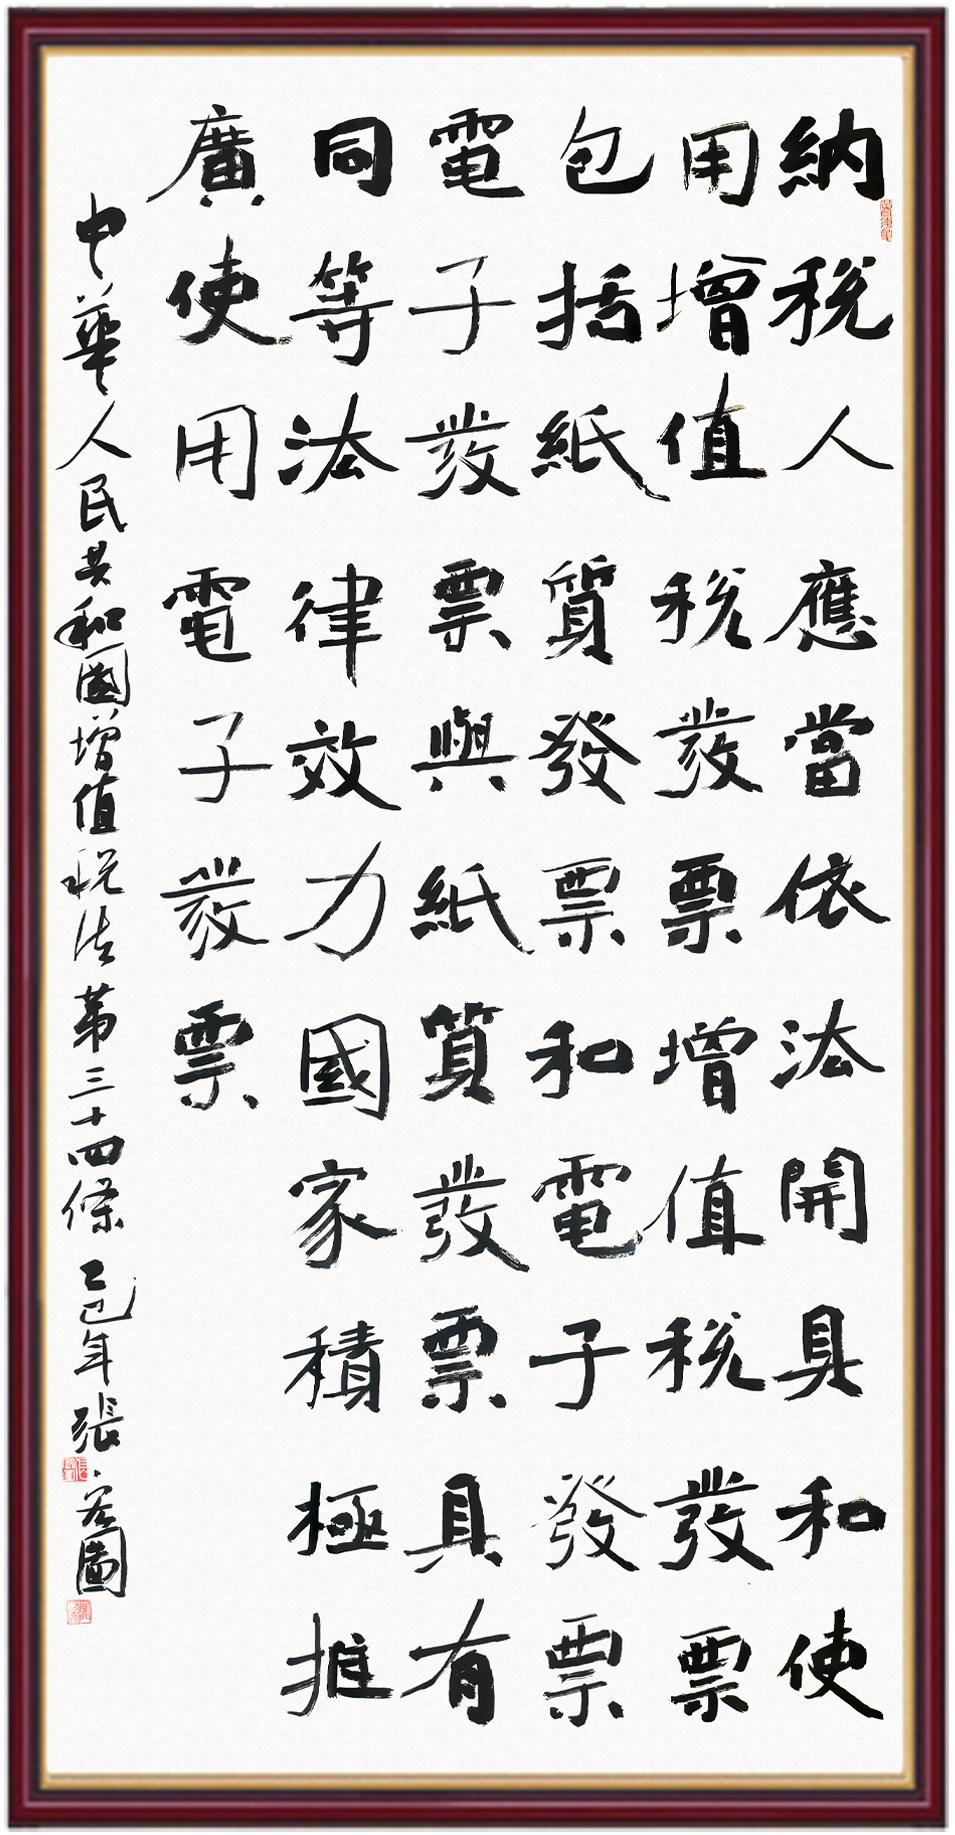 納税人應當依法開具和使
用增值税發票增值税發票
包括紙質發票和電子發票
電子發票與紙質發票具有
同等法律效力國家積極推
廣使用電子發票
中華人民共和國增值税法第三十四條 乙巳年 張圖